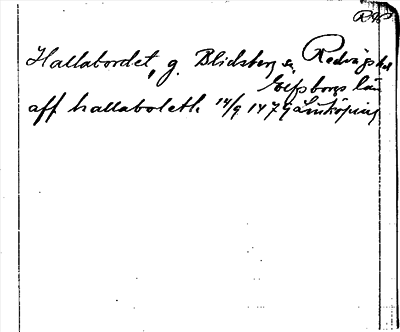 RAP
Hallabordet, g. Blidsberg s. Redvägs hd
Elfsborgs län
aff hallaboleth 14/9 1479 Linköping